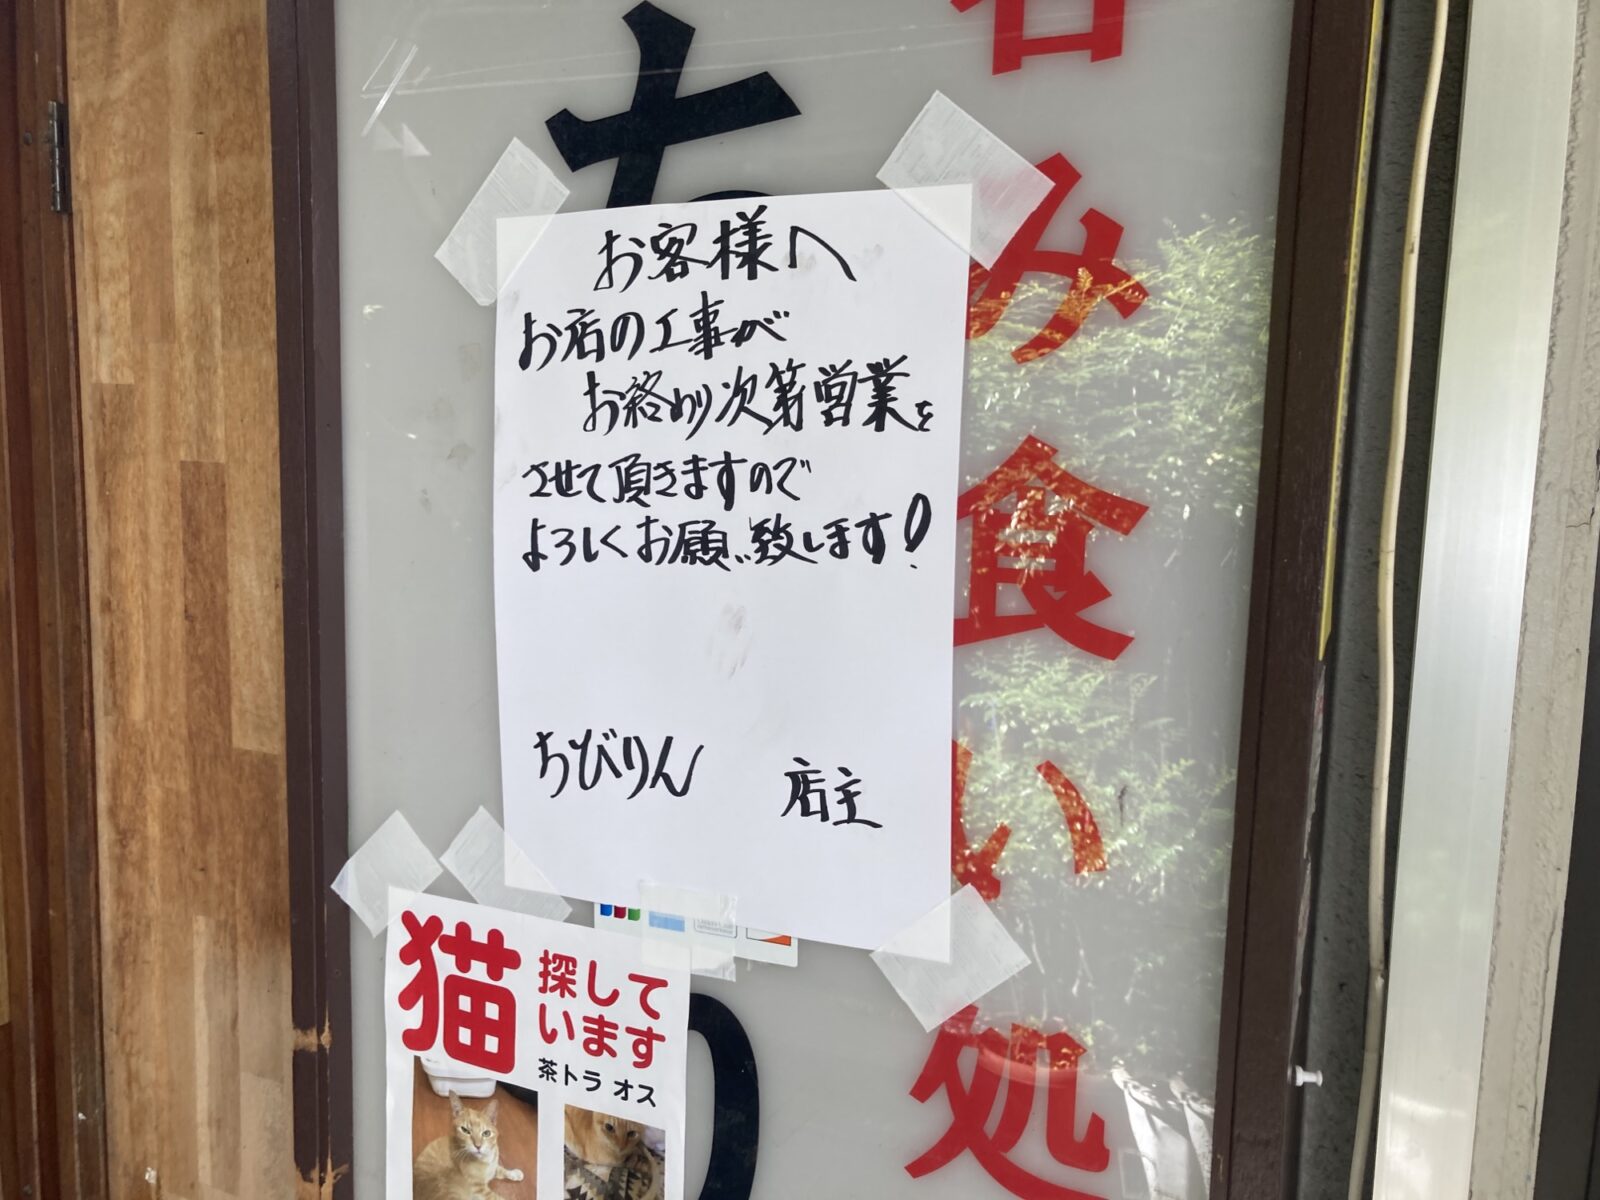 お客様へ
お店の工事が
お終わり次第営業を
させて頂きますので
よろしくお願い致します!
ちびりん 店主
み食い処
ち
り
猫
探して
います
茶トラ オス